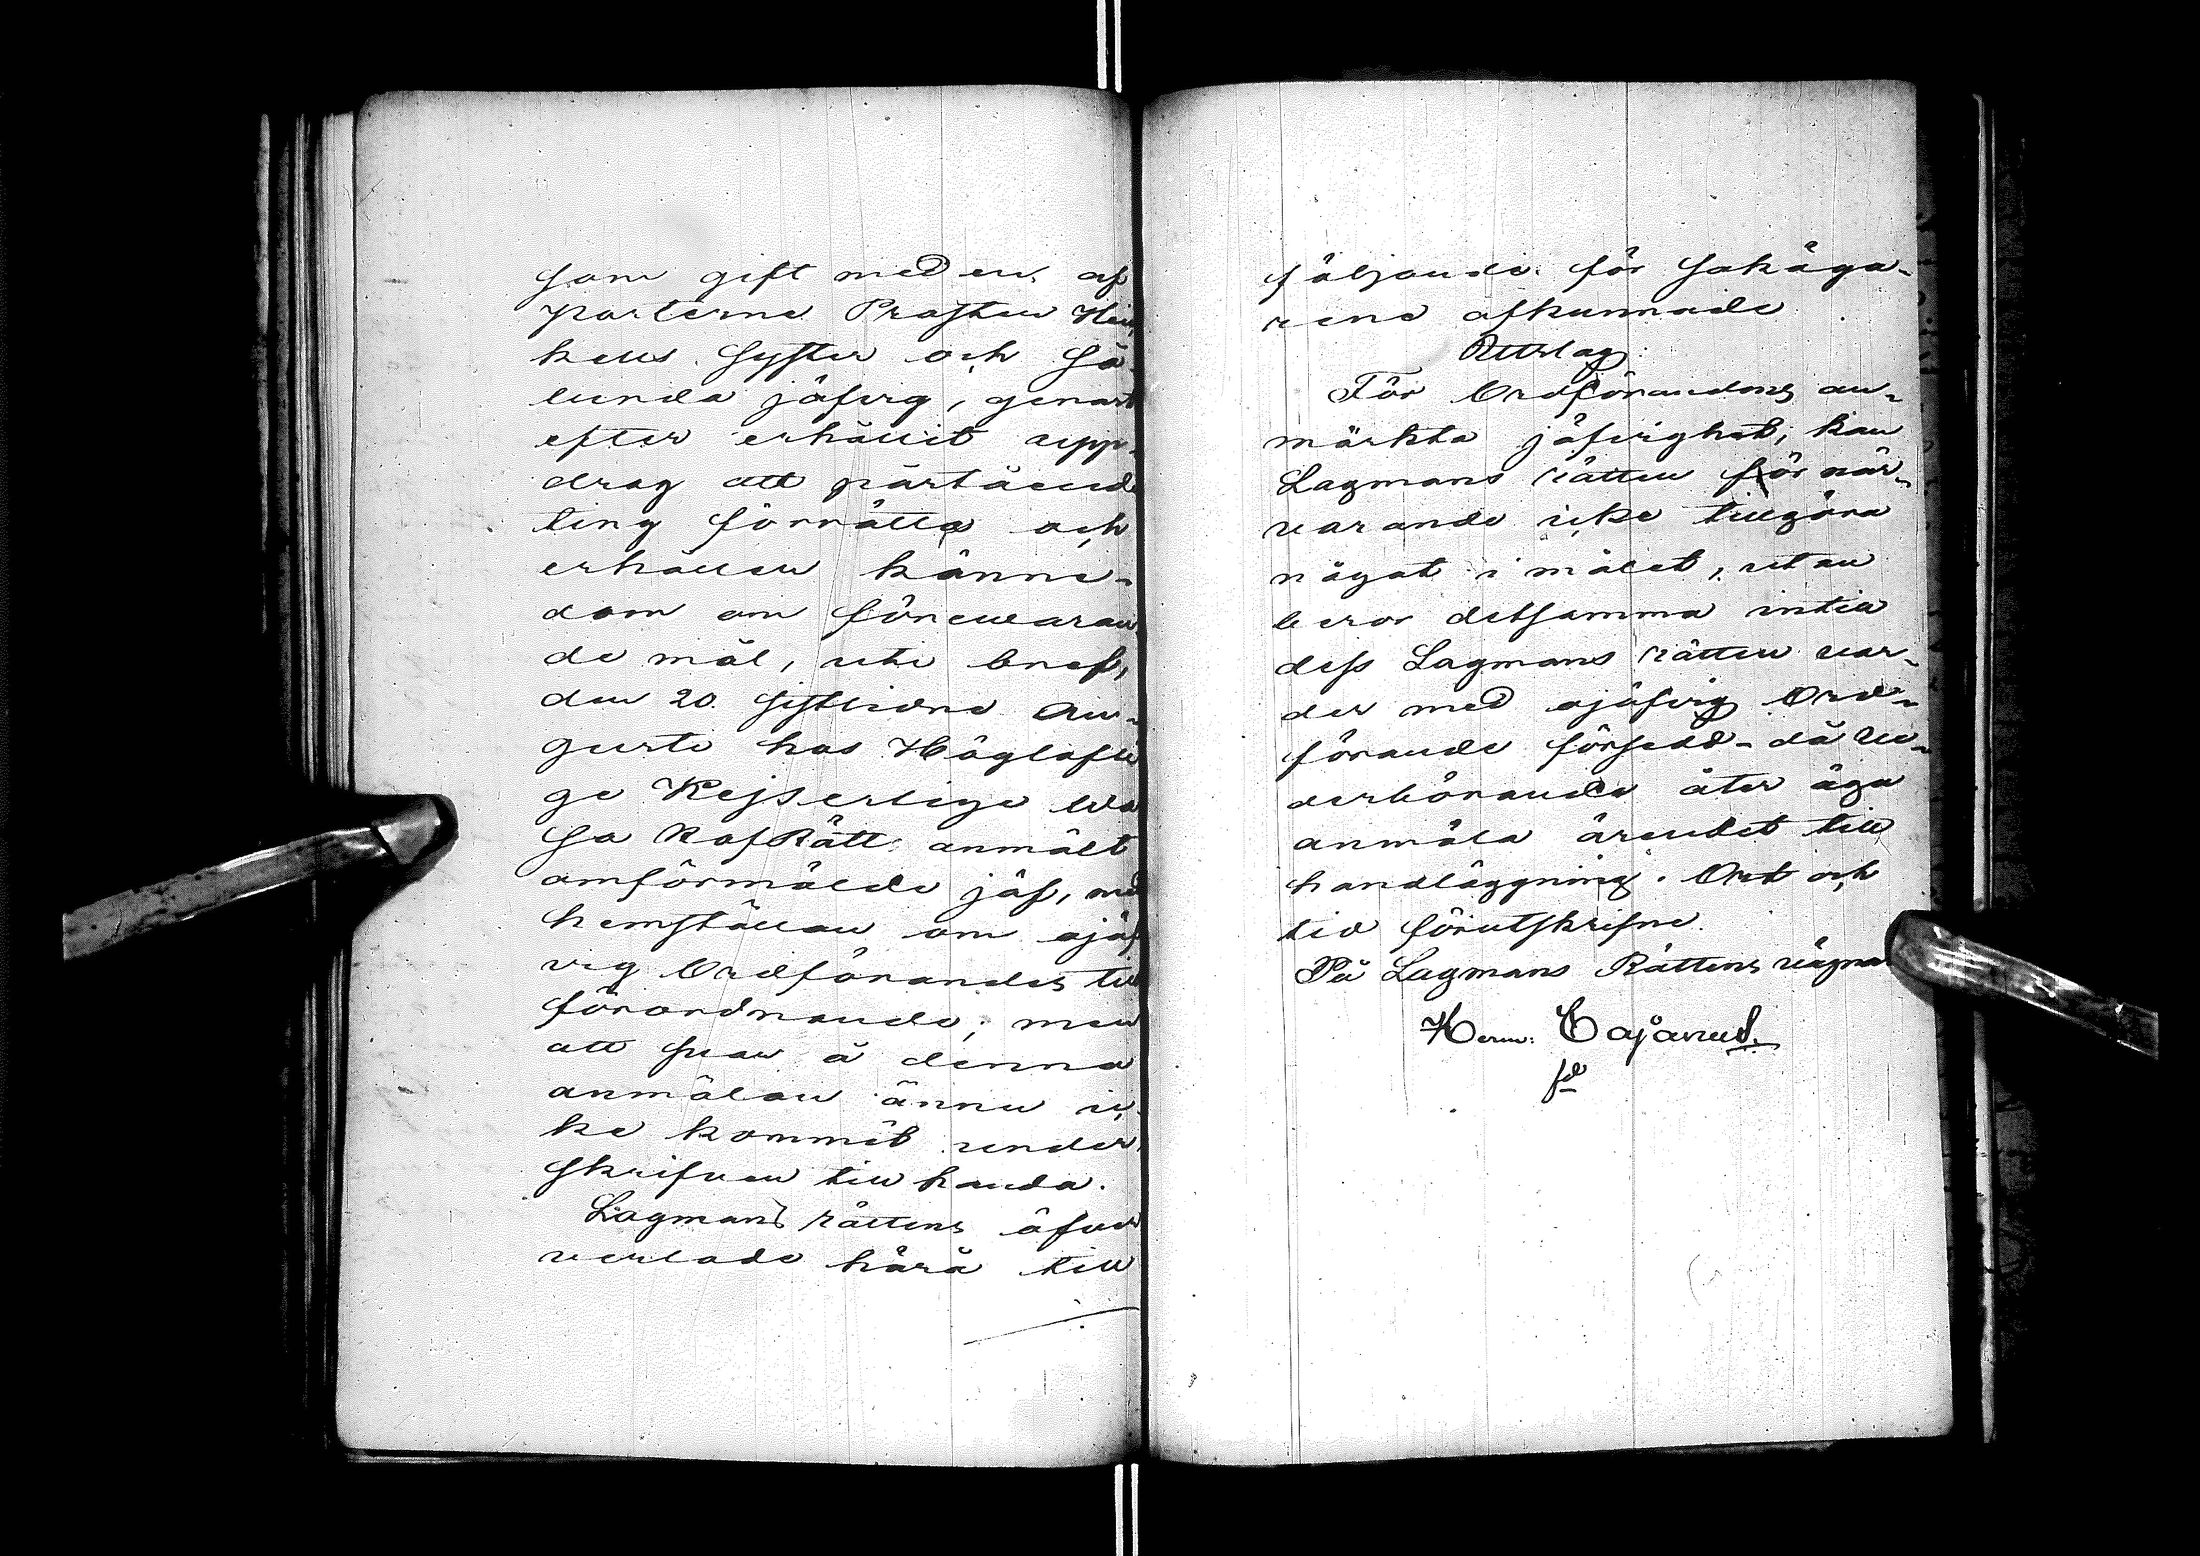 som gift med en af
parterne Prosten Hei
kens Syster och så
lunda jäfvig, genast
efter erhållit upp-
drag att påstående
ting förrätta och
erhållen känne-
dom om förevaran
de mål, uti bref,
den 20. sistlidne Au-
gusti hos Höglofli
ge Kejserlige Wa
sa HofRätt anmält
omförmälde jäf, med
hemställan om ojäf
vig Ordförandes till
förordnande; men
att svar å denna
anmälan ännu ic
ke kommit under
skrifven till handa.
Lagmans rättens öfver
verlade härå till
följande för sakäga-
rene afkunnade
Utslag:
För Ordförandens an-
märkta jäfvighet, kan
Lagmans rätten för när-
varande icke tillgöra
något i målet, utan
beror detsamma intill
dess Lagmans rätten var-
der med ojäfvig Ord-
förande försedd - då ve-
derbörande åter äga
anmäla ärendet till
handläggning. Ort och
tid förutskrifne.
På Lagmans Rättens vägnar
Herm: Cajanus.
fd